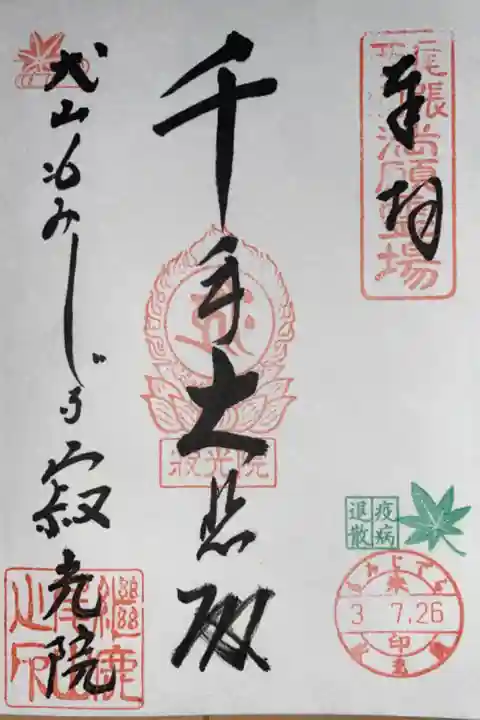 奉拝
尾張
満願霊場
千手大悲殿
寂光院
犬山もみじでら寂光院
継鹿尾山
疫病
退散
もみじでら
3 7.26
印